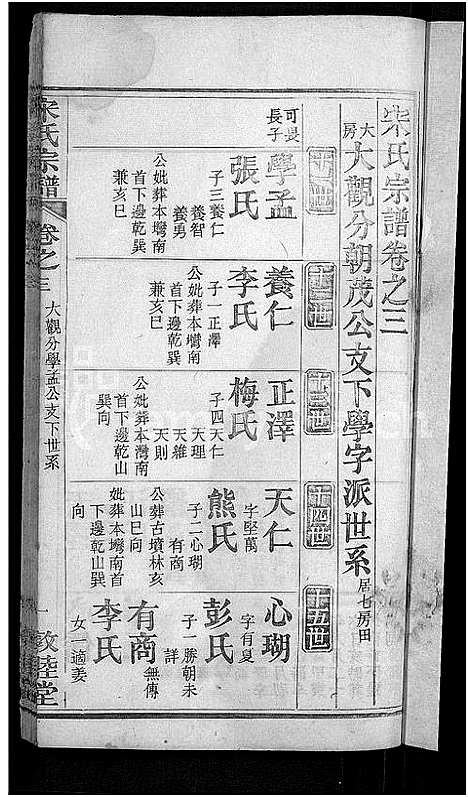 宋氏宗譜卷之三
大房大觀分朝茂公支下學字派世系居七房田
十二世
可畏長子
學孟
張氏
子三養仁
養智
養勇
公妣葬本塆南
首下邊乾巽
兼亥巳
十三世
養仁
李氏
子一正澤
公妣葬本塆南
首下邊乾巽
兼亥巳
十三世
正澤
梅氏
子四天仁
天理
天雄
天則
公妣葬本灣南
首下邊乾山
巽向
十四世
天仁
字堅萬
熊氏
子二心瑚
有商
公葬古墳林亥
山巳向
妣葬本塆南首
下邊乾山巽
向
十五世
心瑚
字有夏
彭氏
子一勝朝未
詳
有商無傳
李氏
女一適姜
宋氏宗譜
卷之三
大觀分學孟公支下世系
一
敦睦堂